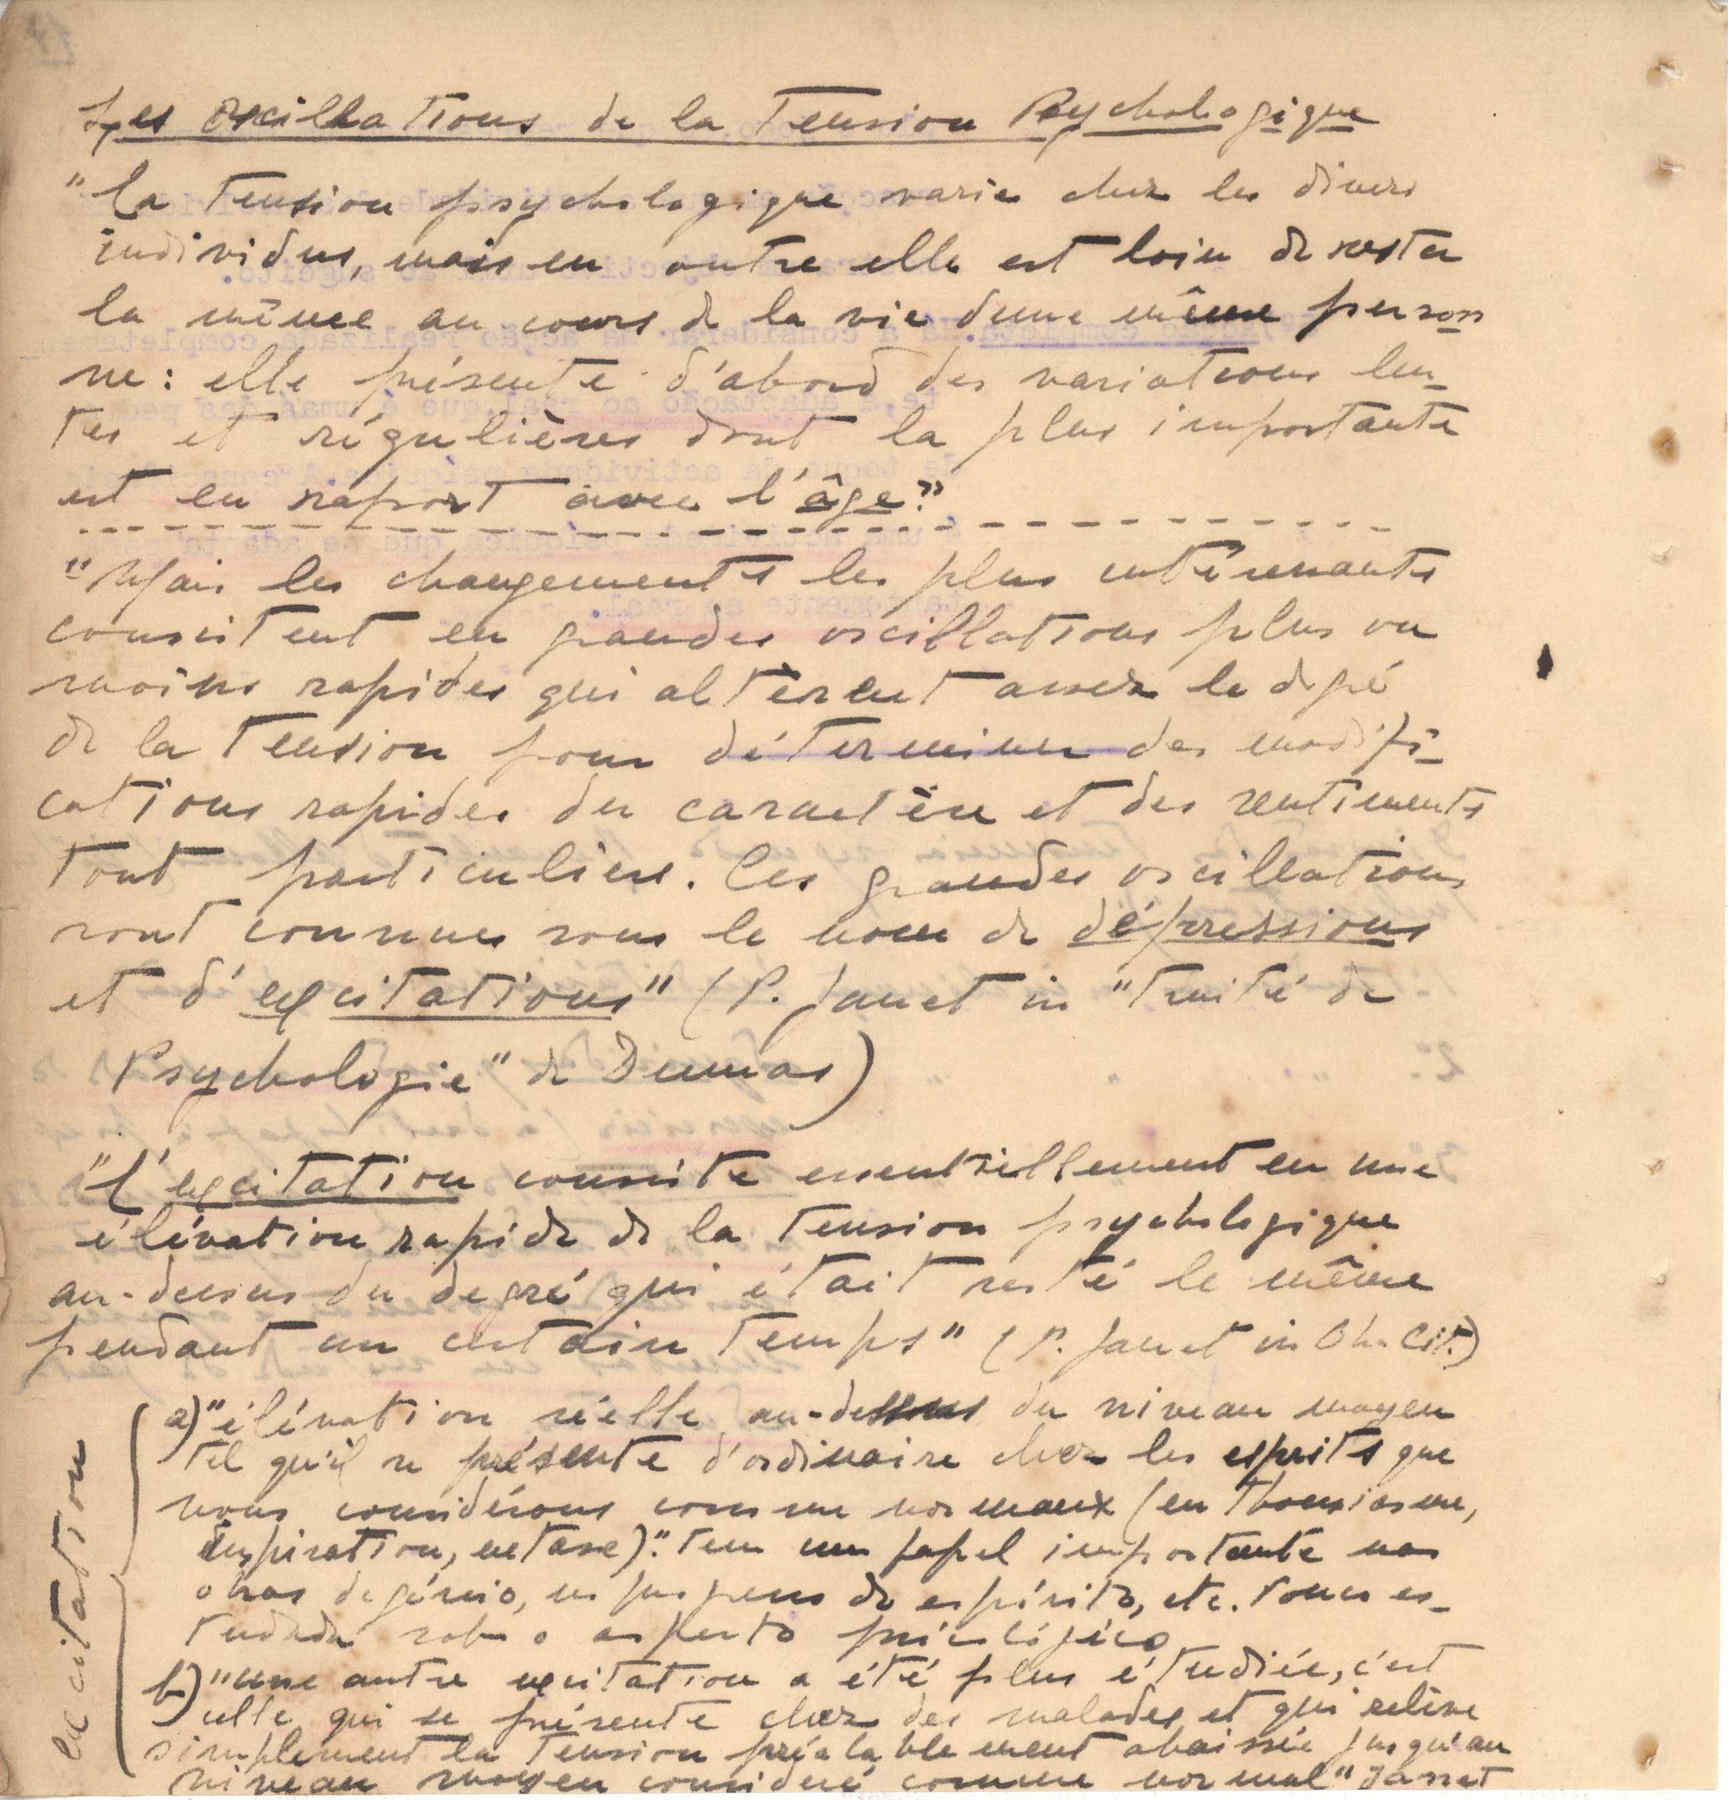 Les Oscillations de la Tension Psychologique
"La tension psychologique varie chez les divers
individus, mais en outre elle est loin de rester
la même au cours de la vie d'une même person
ne: elle présente d'abord des variations len-
tes et régulières dont la plus importante
est en raport avec l'âge."
"Mais les changements les plus intéressants
consistent en grandes oscillations plus ou
moins rapides qui altèrent assez le degré
de la tension pour déterminer des modifi-
cations rapides du caractère et des sentiments
tout particuliers. Ces grandes oscillations
sont connues sous le nom de dépressions
et d'excitations" (P. Janet in "Traité de
Psychologie" de Dumas)
"L'excitation consiste essentiellement en une
élévation rapide de la tension psychologique
au-dessus du degré qui était resté le même
pendant un certain temps" (P. Janet in Ob. Cit.)
excitation
a) "élévation réelle au-dessus du niveau moyen
tel qu'il se présente d'ordinaire chez les esprits que
nous considérons comme normaux (enthousiasme,
inspiration, extase)." tem um papel importante nas
obras de génio, de espírito, etc. Pouco es-
tudada sob o aspecto psicológico
b) "une autre excitation a été plus étudiée, c'est
celle qui se présente chez des malades et qui relève
simplement la tension préalablement abaissée jusqu'au
niveau moyen considéré comme normal" Janet